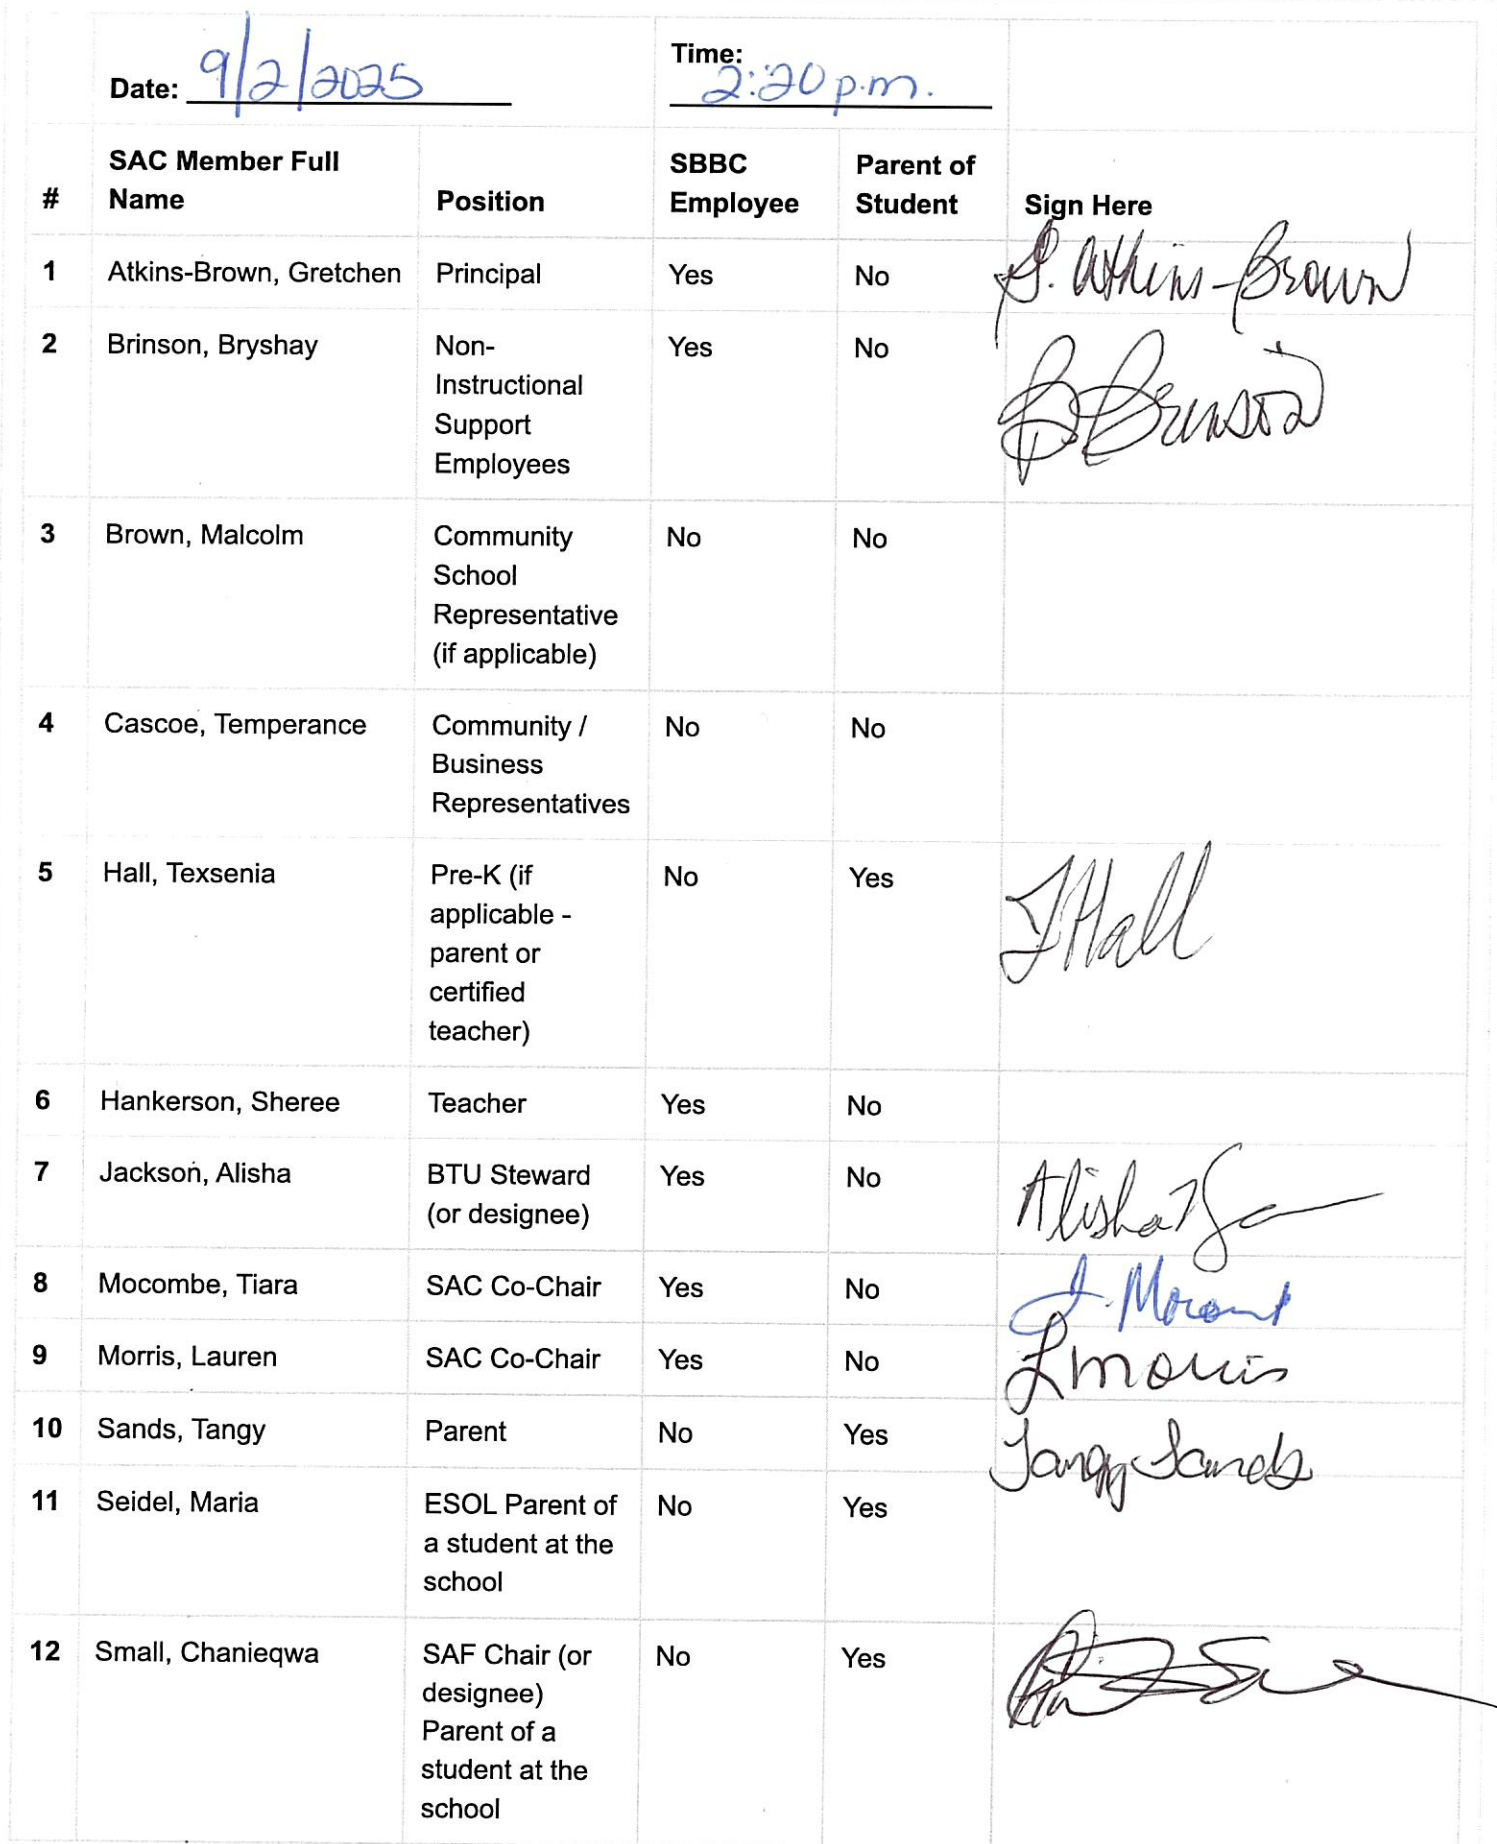 Date: 9/2/2025 Time: 2:20 p.m.
# SAC Member Full Name Position SBBC Employee Parent of Student Sign Here
1 Atkins-Brown, Gretchen Principal Yes No G. Atkins-Brown
2 Brinson, Bryshay Non-
Instructional
Support
Employees Yes No B Brinson
3 Brown, Malcolm Community
School
Representative
(if applicable) No No
4 Cascoe, Temperance Community /
Business
Representatives No No
5 Hall, Texsenia Pre-K (if
applicable -
parent or
certified
teacher) No Yes THall
6 Hankerson, Sheree Teacher Yes No
7 Jackson, Alisha BTU Steward
(or designee) Yes No Alisha
8 Mocombe, Tiara SAC Co-Chair Yes No
9 Morris, Lauren SAC Co-Chair Yes No Lmorris
10 Sands, Tangy Parent No Yes Tangy Sands
11 Seidel, Maria ESOL Parent of
a student at the
school No Yes
12 Small, Chanieqwa SAF Chair (or
designee)
Parent of a
student at the
school No Yes